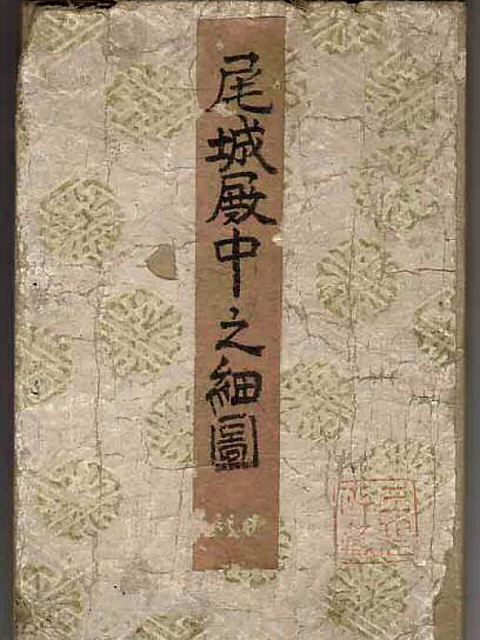 尾城殿中之細圖